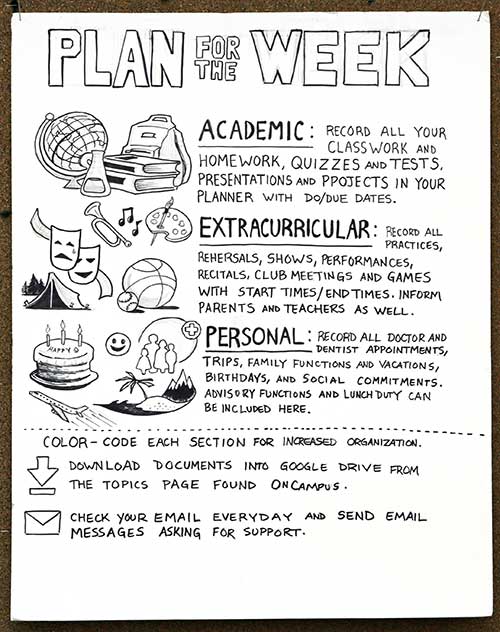 PLAN FOR THE WEEK
ACADEMIC: RECORD ALL YOUR
CLASSWORK AND
HOMEWORK, QUIZZES AND TESTS,
PRESENTATIONS AND PPOJECTS IN YOUR
PLANNER WITH DO/DUE DATES.
EXTRACURRICULAR: RECORD ALL
PRACTICES,
REHERSALS, SHOWS, PERFORMANCES,
RECITALS, CLUB MEETINGS AND GAMES
WITH START TIMES/END TIMES. INFORM
PARENTS AND TEACHERS AS WELL.
HAPPY
PERSONAL: RECORD ALL DOCTOR AND
DENTIST APPOINTMENTS,
TRIPS, FAMILY FUNCTIONS AND VACATIONS,
BIRTHDAYS, AND SOCIAL COMMITMENTS.
ADVISORY FUNCTIONS AND LUNCH DUTY CAN
BE INCLUDED HERE.
COLOR-CODE EACH SECTION FOR INCREASED ORGANIZATION.
DOWNLOAD DOCUMENTS INTO GOOGLE DRIVE FROM
THE TOPICS PAGE FOUND ONCAMPUS.
CHECK YOUR EMAIL EVERYDAY AND SEND EMAIL
MESSAGES ASKING FOR SUPPORT.